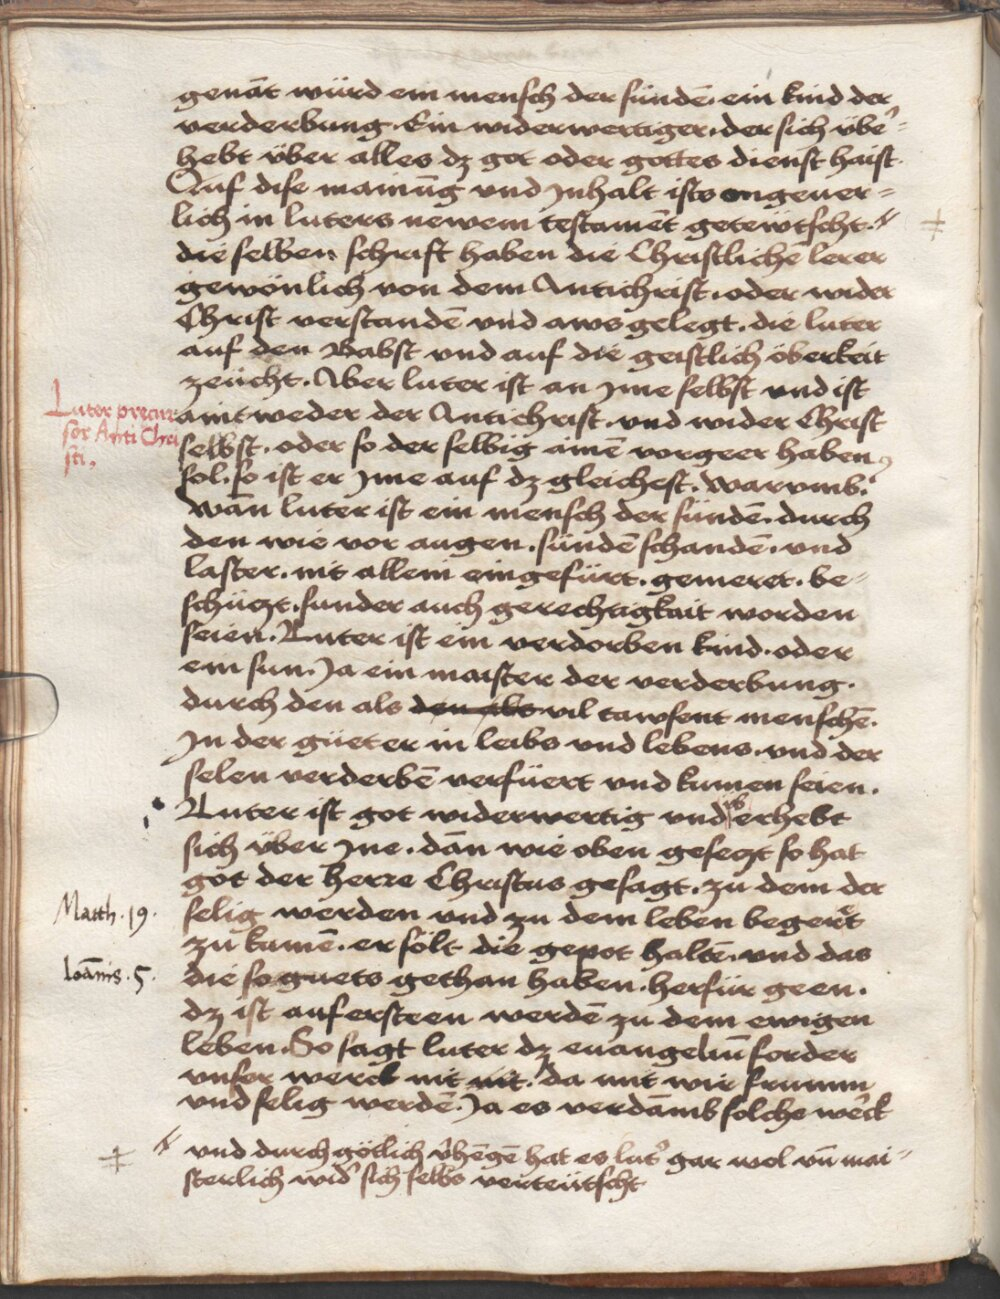 genāt würd ein mensch der sünde. ein kind der
verderbung. Ein widerwertiger. der sich übe=
hebt über alles dz got oder gottes dienst haist.
Auf dise mainūg vnd Inhalt ists ongeuer=
lich in luters newem testamēt getewtscht.
die selben schrift haben die Christlichē lerer
gewönlich von dem Antichrist. oder wider
Christ verstandē vnd aws gelegt. die luter
auf den Babst vnd auf die geistlich öberkeit
zeücht. Aber luter ist an Ime selbst vnd ist
Luter precur
sor Anti Chri
sti.
aintweder der Antichrist. vnd wider Christ
selbst. oder so der selbig ainē vorgeer haben
sol. so ist er Ime auf dz gleichest. warumb.
wan̄ luter ist ein mensch der sündē. durch
den wie vor augen. sündē schandē. vnd
laster. nit allein eingefürt. gemeret. be=
schützt. sunder auch gerechtigkait worden
seien. Luter ist ein verdorben kind. oder
ein sun. Ja ein maister der verderbung.
durch den als vil tawsent menschē.
In der güeter in leibs vnd lebens. vnd der
selen verderbē verfüert vnd kumen seien.
Luter ist got widerwertig vnd erhebt
sich über Ine. dān wie oben gesetzt so hat
got der herre Christus gesagt. zu dem der
Matth. 19.
selig werden vnd zu dem leben begert
zu kumē. er sölt die gepot haltē. vnd das
Ioānis. 5.
die so guets gethan haben. herfür geen.
dz ist aufersteen werdē zu dem ewigen
leben. So sagt luter dz euangeliū forder
vnser werck nit. da mit wir frumm
vnd selig werdē. Ja es verdamb solche werck
vnd durch götlich v̉hēgē hat es lut̉ gar wol vn̄ mai=
sterlich wid̉ sich selbs verteütscht